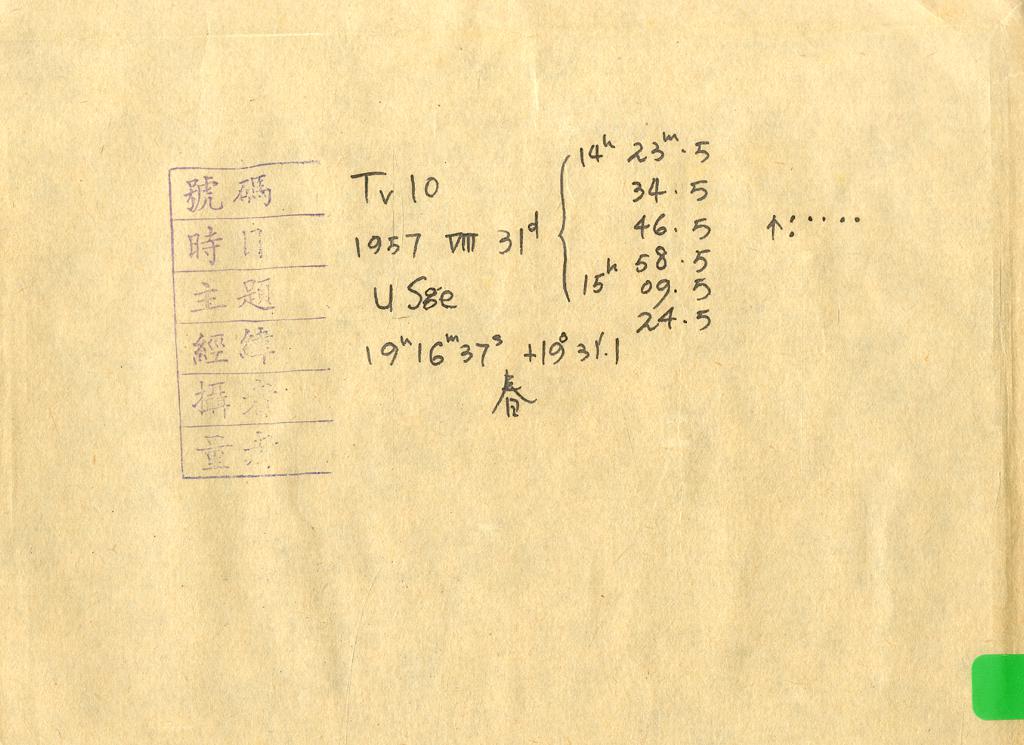 號碼 Tv 10
時日 1957 VIII 31ᵈ
14ʰ 23ᵐ.5
34.5
46.5
58.5
15ʰ 09.5
24.5
主題 U Sge
經緯 19ʰ16ᵐ37ˢ +19°31'.1
攝者 春
量者